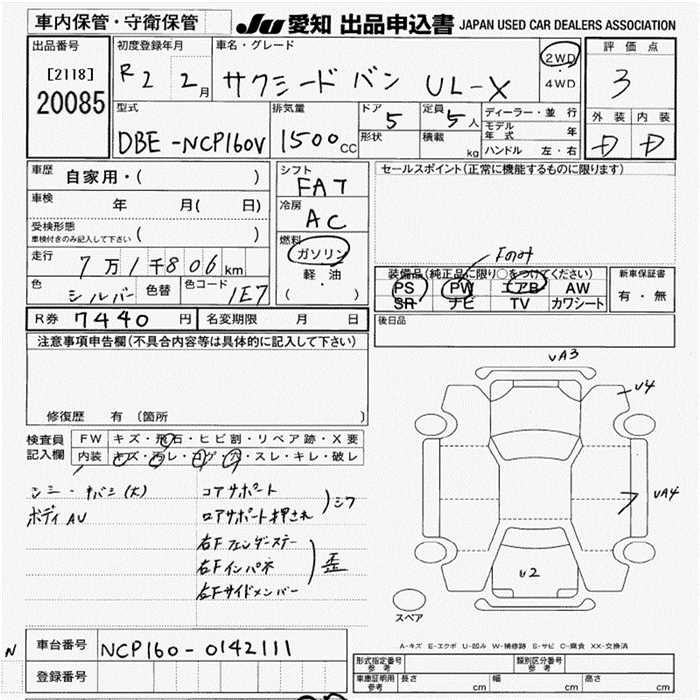 車内保管・守衛保管
JU 愛知 出品申込書 JAPAN USED CAR DEALERS ASSOCIATION
出品番号
[2118]
20085
初度登録年月
R2 2月
車名・グレード
サクシード バン UL-X
2WD
・
4WD
評価点
3
外装 内装
D D
型式
DBE-NCP160V
排気量
1500cc
ドア
5
形状
定員
5人
積載
kg
ディーラー・並行
モデル年式 年
ハンドル 左・右
車歴 自家用・( )
車検 年 月( 日)
受検形態
車検付きのみ記入して下さい ( )
走行
7万1千806km
色 シルバー 色替 色コード 1E7
シフト
FAT
冷房
AC
燃料
ガソリン
軽・油
( ・ )
セールスポイント(正常に機能するものに限ります)
Front
装備品(純正品に限り○をつけてください)
PS PW エアB AW
SR ナビ TV カワシート
新車保証書
有・無
R券 7440円 名変期限 月 日
後日品
注意事項申告欄(不具合内容等は具体的に記入して下さい)
修復歴 有 〔箇所
検査員記入欄
FW キズ・飛石・ヒビ割・リペア跡・X要
内装 キズ・汚レ・コゲ・穴・スレ・キレ・破レ
コアサポート
ロアサポート押され
)シワ
ボディAU
右Fフェンダーステー
右Fインパネ
右Fサイドメンバー
)歪
UA3
U4
UA4
U2
スペア
A-キズ E-エクボ U-凹み W-補修跡 S-サビ C-腐食 XX-交換済
N
車台番号 NCP160-0142111
登録番号
形式指定番号 参考
類別区分番号 参考
車庫証明用 参考 長さ cm 幅 cm 高さ cm